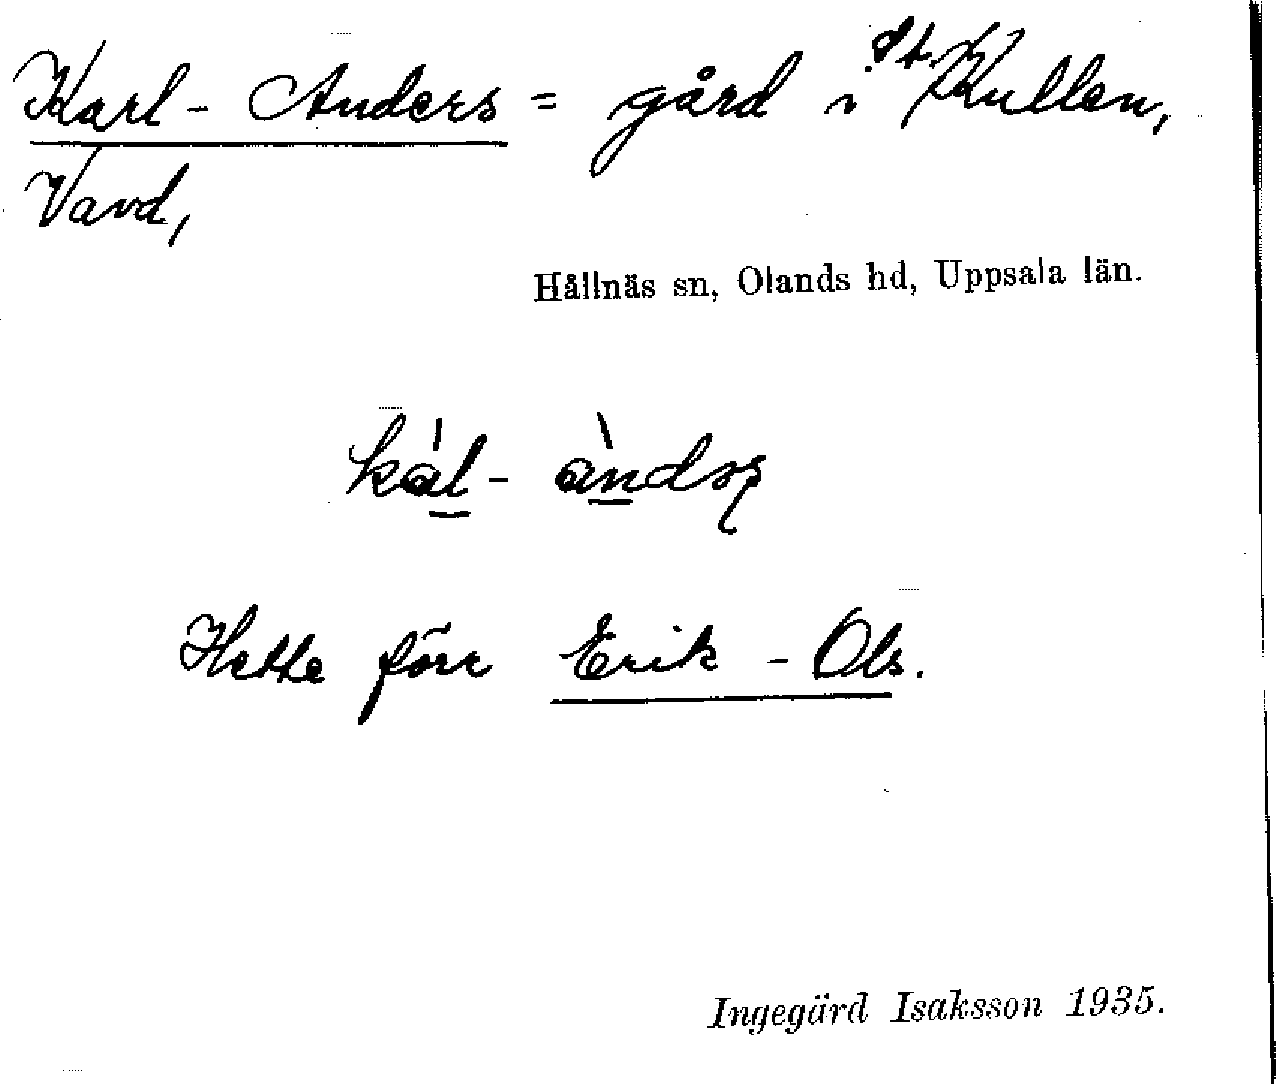 Karl-Anders = gård i St. Kullen,
Vavd,
Hållnäs sn, Olands hd, Uppsala län.
Hette förr Erik-Ols.
Ingegärd Isaksson 1935.